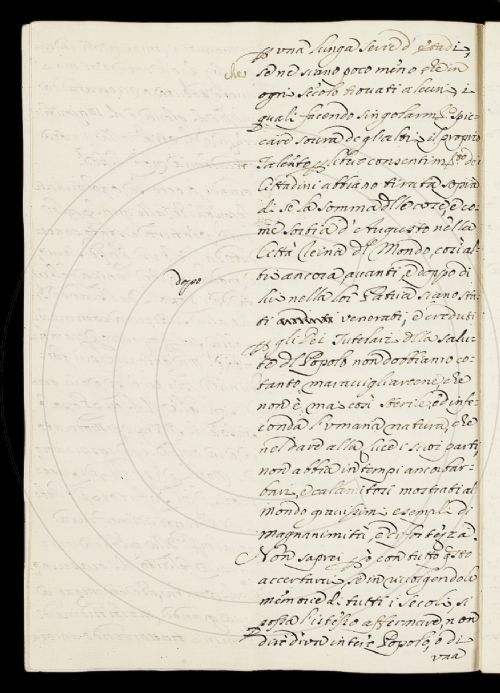 una lunga serie d' Etadi,
che se ne siano poco meno che in
ogni secolo trovati alcuni, i
quali facendo singolarm.te spic-
care sovra degl'altri il proprio
Talento, e consentim.to dei
Cittadini abbiano tirata sopra
di se la somma delle cose, e co-
me si stia d' Augusto nella
Città Reina del Mondo, così al-
tri ancora, avanti, e doppo di
doppo
lui nella lor Patria siano sta-
ti venerati, e creduti
gli Dei Tutelari della salu-
te del Popolo non dobbiamo co-
tanto maravigliarcene, che
non è mai così sterile, ed infe-
conda l'umana natura, che
nel dare alla luce i suoi parti,
non abbia in tempi ancor bar-
bari, e calamitosi mostrati al
mondo gravissimi esempli di
magnanimità, e di fortezza.
Non saprei con tutto q.sto
accertare, se in volgendo le
memorie di tutti i secoli si
possa l'istesso affermare, non
dirò d'un intero Popolo, o di
una